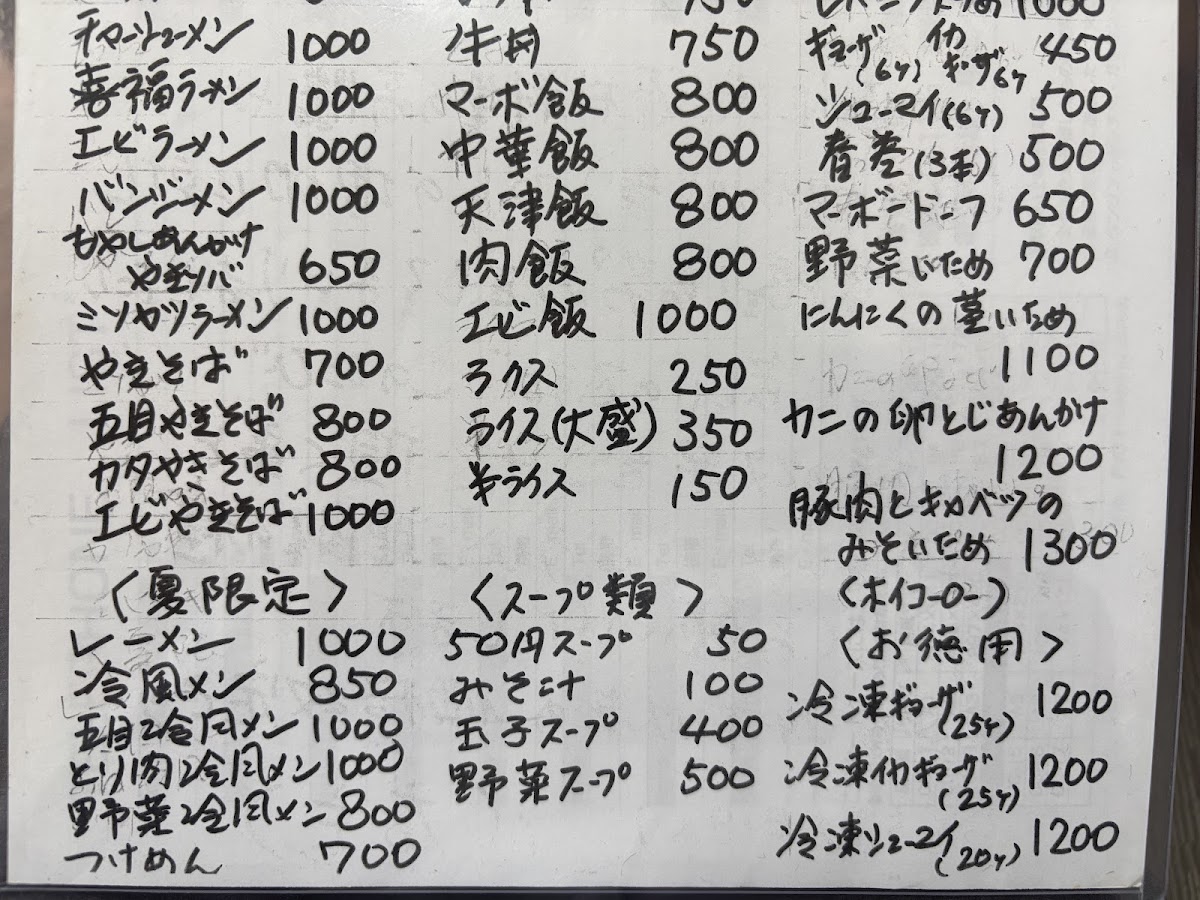 チャーシューメン 1000
喜福ラーメン 1000
エビラーメン 1000
バンジーメン 1000
もやしあんかけ
やきソバ 650
ミソカツラーメン 1000
やきそば 700
五目やきそば 800
カタやきそば 800
エビやきそば 1000
〈夏限定〉
レーメン 1000
冷風メン 850
五目冷風メン 1000
とり肉冷風メン 1000
野菜冷風メン 800
つけめん 700
牛丼 750
マーボ飯 800
中華飯 800
天津飯 800
肉飯 800
エビ飯 1000
ライス 250
ライス(大盛) 350
半ライス 150
〈スープ類〉
50円スープ 50
みそ汁 100
玉子スープ 400
野菜スープ 500
1000
ギョーザ(6ケ) イカギョーザ6ケ 450
シューマイ(6ケ) 500
春巻(3本) 500
マーボードーフ 650
野菜いため 700
にんにくの茎いため
1100
カニの卵とじあんかけ
1200
豚肉とキャベツの
みそいため 1300
(ホイコーロー)
〈お徳用〉
冷凍ギョーザ(25ケ) 1200
冷凍イカギョーザ(25ケ) 1200
冷凍シューマイ(20ケ) 1200